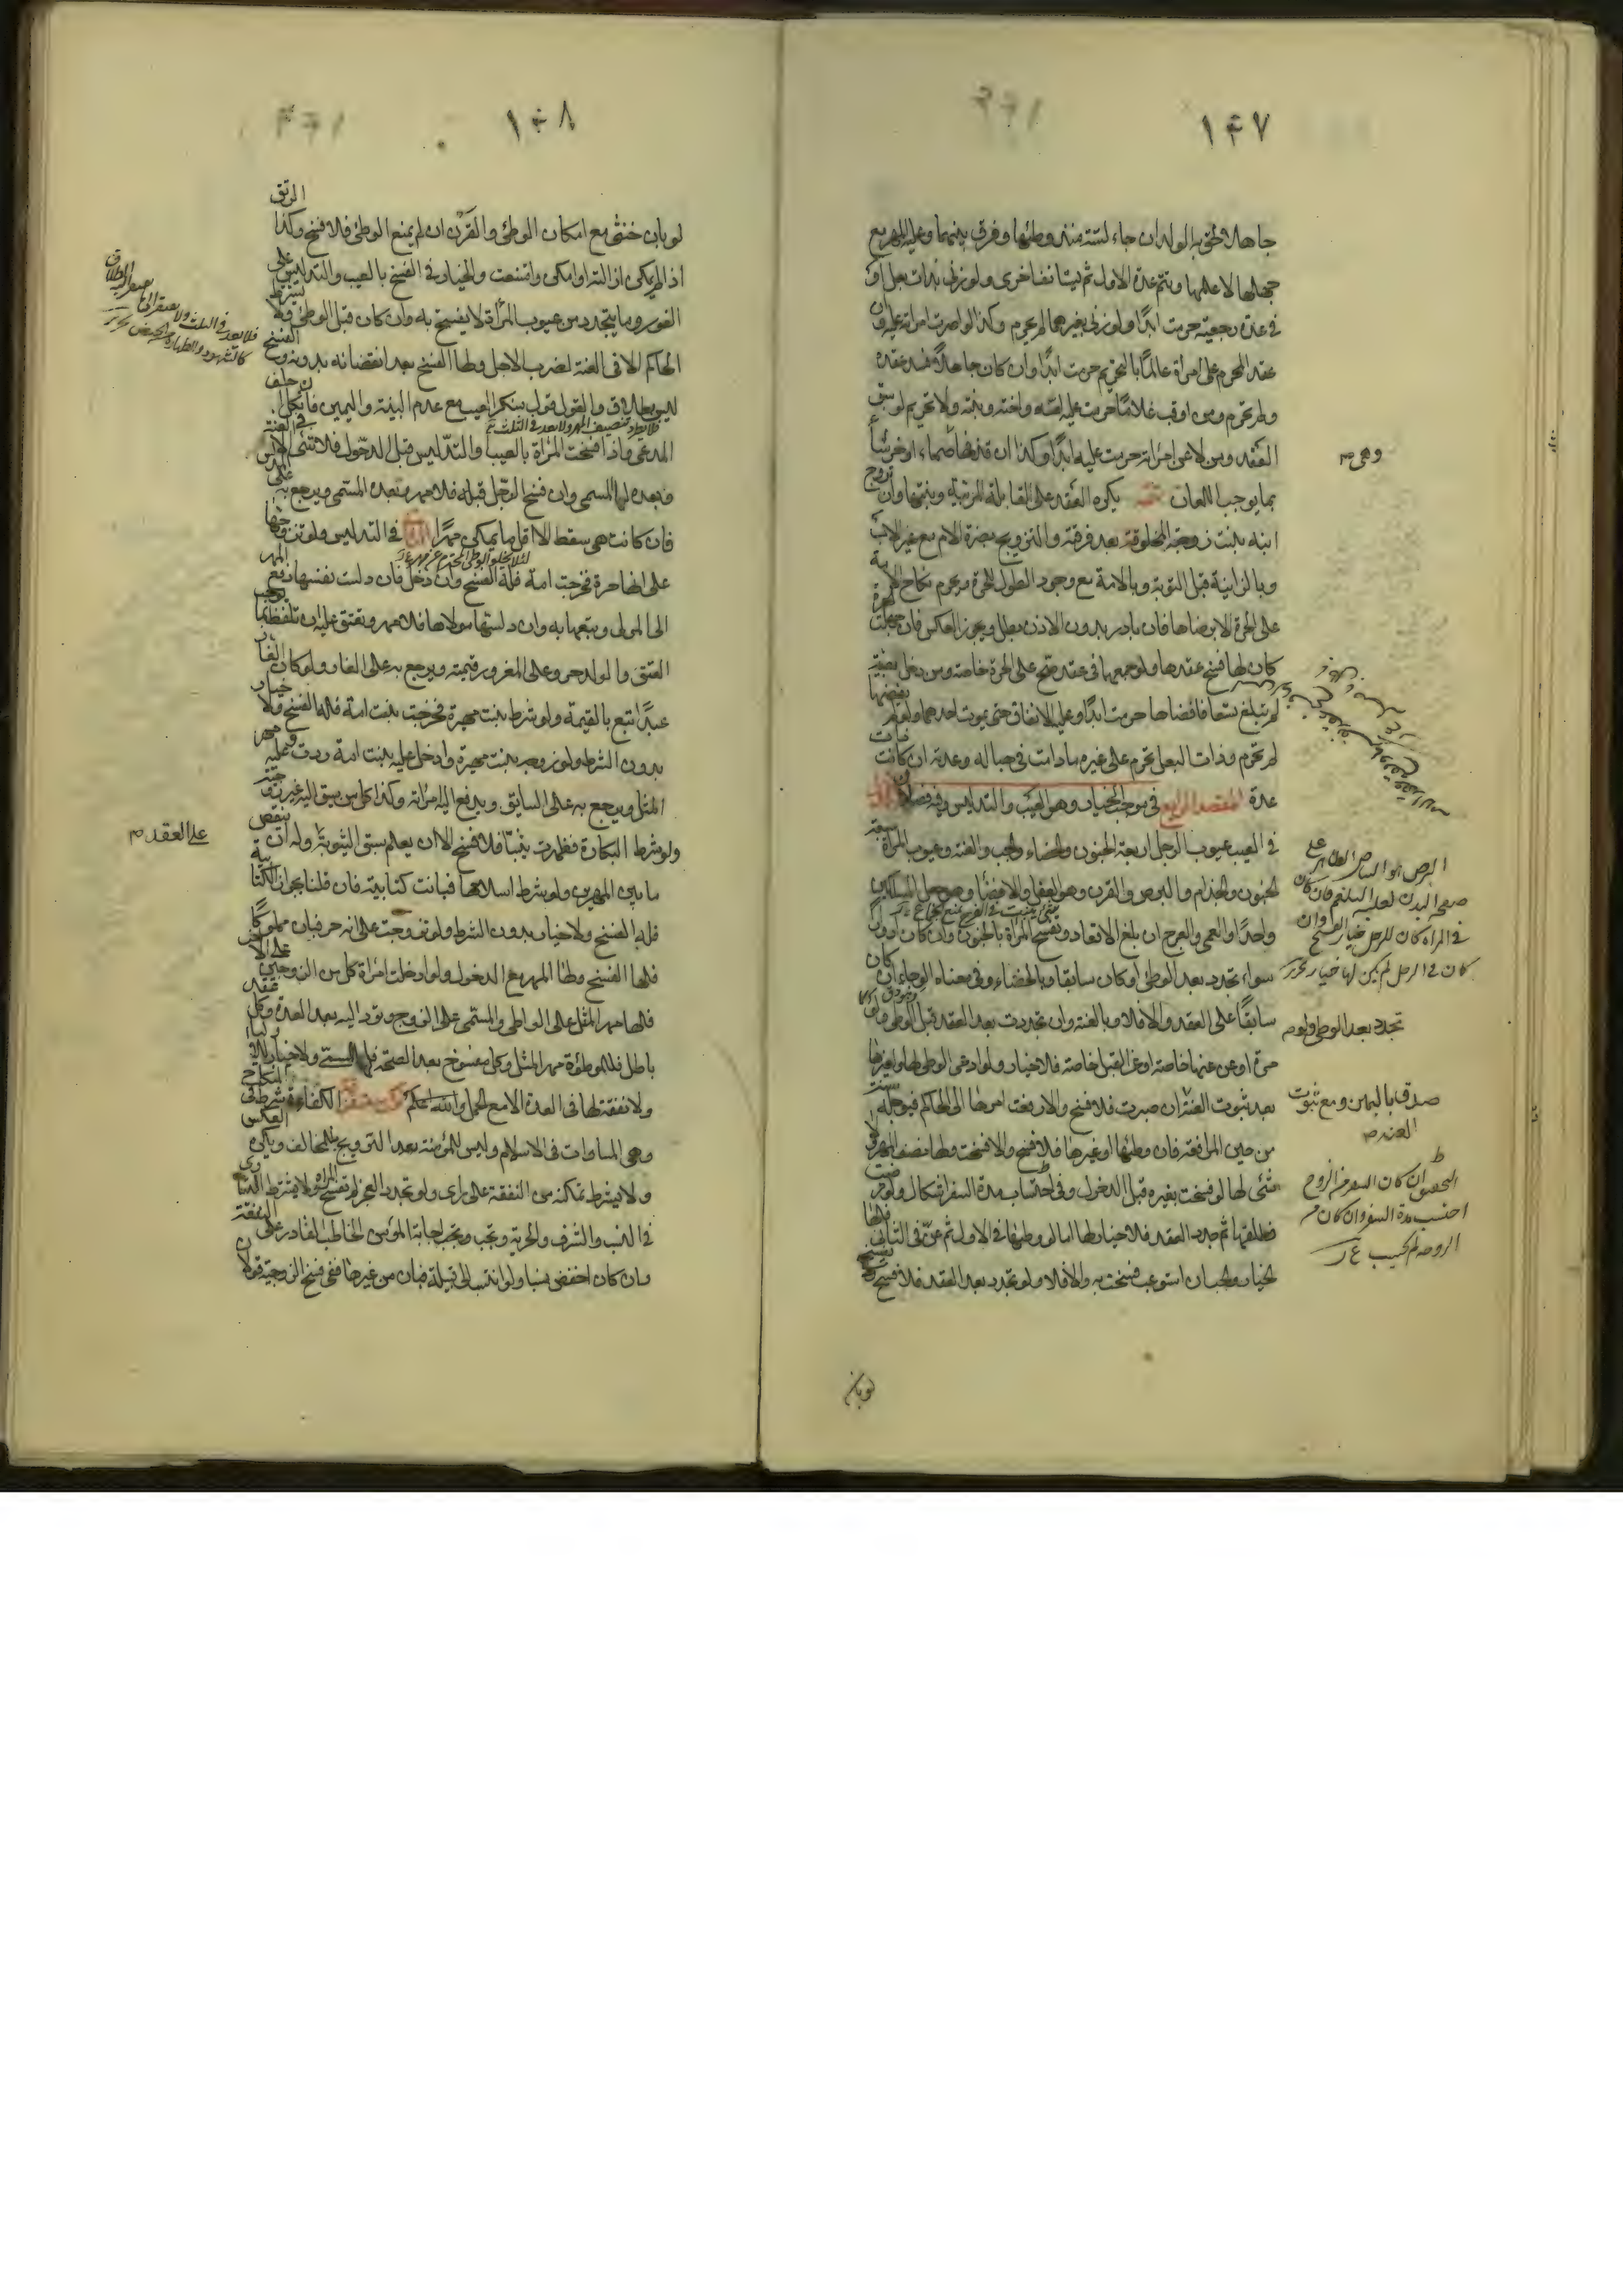 ١٤٧
جاهلا لحق به الولد ان جاء لستة منذ وطئها وفرق بينهما وعليه المهر مع
جهلها لا علمها ويتم عدة الاول ثم يستانف اخرى ولو زنى بذات بعل او
في عدة رجعية حرمت ابدًا ولو زنى بغيرهما لم يحرم وكذا لو اصرت امراته عليه وان
عقد المحرم على امراة عالمًا بالتحريم حرمت ابدًا وان كان جاهلاً فسد عقده
ولم تحرم ومن اوقب غلامًا حرمت عليه امه واخته وبنته ولا تحريم لو سبق
العقد ومن لاعن امراته حرمت عليه ابدًا وكذا ان قذفها صماء او خرساء
وهى م
بما يوجب اللعان تتمه يكره العقد على القابلة المربية وبنتها وان تزوج
ابنه بنت زوجته المخلوقة بعد فرقته والتزويج بضرة الام مع غير الاب
وبالزانية قبل التوبة وبالامة مع وجود الطول للحرة ويحرم نكاح الامة
على الحرة الا برضاها فان بادر بدون الاذن بطل ويجوز العكس فان جهلت الحرة
كان لها فسخ عقدها ولو جمعهما في عقد صح على الحرة خاصة ومن دخل بصبية
لم تبلغ تسعا فافضاها حرمت ابدًا وعليه الانفاق حتى يموت احدهما ولو لم يفضها
لم تحرم وذات البعل تحرم على غيره ما دامت في حباله وعدته ان كانت ذات
عدة المقصد الرابع في موجب الخيار وهو العيب والتدليس وفيه فصلان الاول
في العيب عيوب الرجل اربعة الجنون والخصاء والجب والعنة وعيوب المراة سبعة
الجنون والجذام والبرص والقرن وهو العفل والافضاء وهو جعل المسلكين
واحدًا والعمى والعرج ان بلغ الاقعاد وتفسخ المراة بالجنون وان كان ادوارا
سواء تجدد بعد الوطئ او كان سابقا وبالخصاء وفي معناه الوجاء ان كان
سابقًا على العقد والا فلا وبالعنة وان تجددت بعد العقد قبل الوطى ولو
تجدد بعد الوطى ولو م
مرة او عن عنها خاصة او عن القبل خاصة فلا خيار ولو ادعى الوطى لها او لغيرها
صدق باليمين ومع ثبوت
العنة م
بعد ثبوت العنة ان صبرت فلا فسخ والا رفعت امرها الى الحاكم فيؤجله سنة
من حين المرافعة فان وطئها او غيرها فلا فسخ والا فسخت ولها نصف المهر ولا
شئ لها لو فسخت بغيره قبل الدخول وفي احتساب مدة السفر اشكال ولو رضيت
فطلقها ثم جدد العقد فلا خيار لها اما لو وطئها في الاول ثم عن في الثاني فلها
الخيار والجب ان استوعب فسخت به والا فلا ولو تجدد بعد العقد فلا فسخ
البرص هو البياض الظاهر على
صفحة البدن لغلبة البلغم فان كان
في المراة كان للرجل خيار الفسخ وان
كان في الرجل لم يكن لها خيار
التحقيق ان كان السفر من الزوج
احتسب مدة السفر وان كان من
الزوجة لم يحتسب ع ر
لو بان
١٤٨
لو بان خنثى مع امكان الوطئ والقرن ان لم يمنع الوطئ فلا فسخ وكذا الرتق
اذا لم يمكن ازالته او امكن وامتنعت والخيار في الفسخ بالعيب والتدليس على
الفور وما يتجدد من عيوب المرأة لا يفسخ به وان كان قبل الوطئ ولا يشترط
الحاكم الا في العنة لضرب الاجل ولها الفسخ بعد انقضائه بدونه والفسخ
ليس بطلاق والقول قول منكر العيب مع عدم البينة واليمين فان نكل حلف
فلا يطرد تنصيف المهر ولا يعد في الثلث
المدعى واذا فسخت المراة بالعيب والتدليس قبل الدخول فلا شئ الا في العنة
وبعده لها المسمى وان فسخ الرجل قبله فلا مهر وبعده المسمى ويرجع به على المدلس
فان كانت هى سقط الا اقل ما يمكن مهرًا الثاني في التدليس ولو تزوجها
لئلا يخلو الوطى المحترم عن مهر ع ر
على انها حرة فخرجت امة فله الفسخ وان دخل فان دلست نفسها دفع المهر
الى المولى ويتبعها به وان دلسها مولاها فلا مهر وتعتق عليه ان تلفظ بما يوجب
العتق والولد حر وعلى المغرور قيمته ويرجع به على الغار ولو كان الغار
عبدًا اتبع بالقيمة ولو شرط بنت مهيرة فخرجت بنت امة فله الفسخ ولا خيار
بدون الشرط ولو زوجه بنت مهيرة وادخل عليه بنت امة ردت وعليه مهر
المثل ويرجع به على السايق ويدفع اليه امراته وكذا كل من سيق اليه غير زوجته
ولو شرط البكارة فظهرت ثيبًا فلا فسخ الا ان يعلم سبق الثيوبة وله ان ينقص
على العقد م
ما بين المهرين ولو شرط اسلامها فبانت كتابية فان قلنا بجواز الكتابية
فله الفسخ ولا خيار بدون الشرط ولو تزوجت على انه حر فبان مملوكًا
فلها الفسخ ولها المهر مع الدخول ولو ادخلت امراة كل من الزوجين على الاخر
فلها مهر المثل على الواطى والمسمى على الزوج وترد اليه بعد العدة وكل عقد
باطل فللموطؤة مهر المثل وكل مفسوخ بعد الصحة فلها المسمى ولا خيار
ولا نفقة لها في العدة الا مع الحمل الكفاءة شرط في النكاح
وهى المساوات في الاسلام وليس للمؤمنة بعد التزويج بالمخالف ويكره العكس
ولا يشترط تمكنه من النفقة على راى ولو تجدد العجز لم تفسخ المراة ولا يشترط التساوى
في النسب والشرف والحرية ويجب اجابة المؤمن الخاطب القادر على النفقة
وان كان اخفض نسبا ولو انتسب الى قبيلة فبان من غيرها ففي فسخ الزوجية قولان